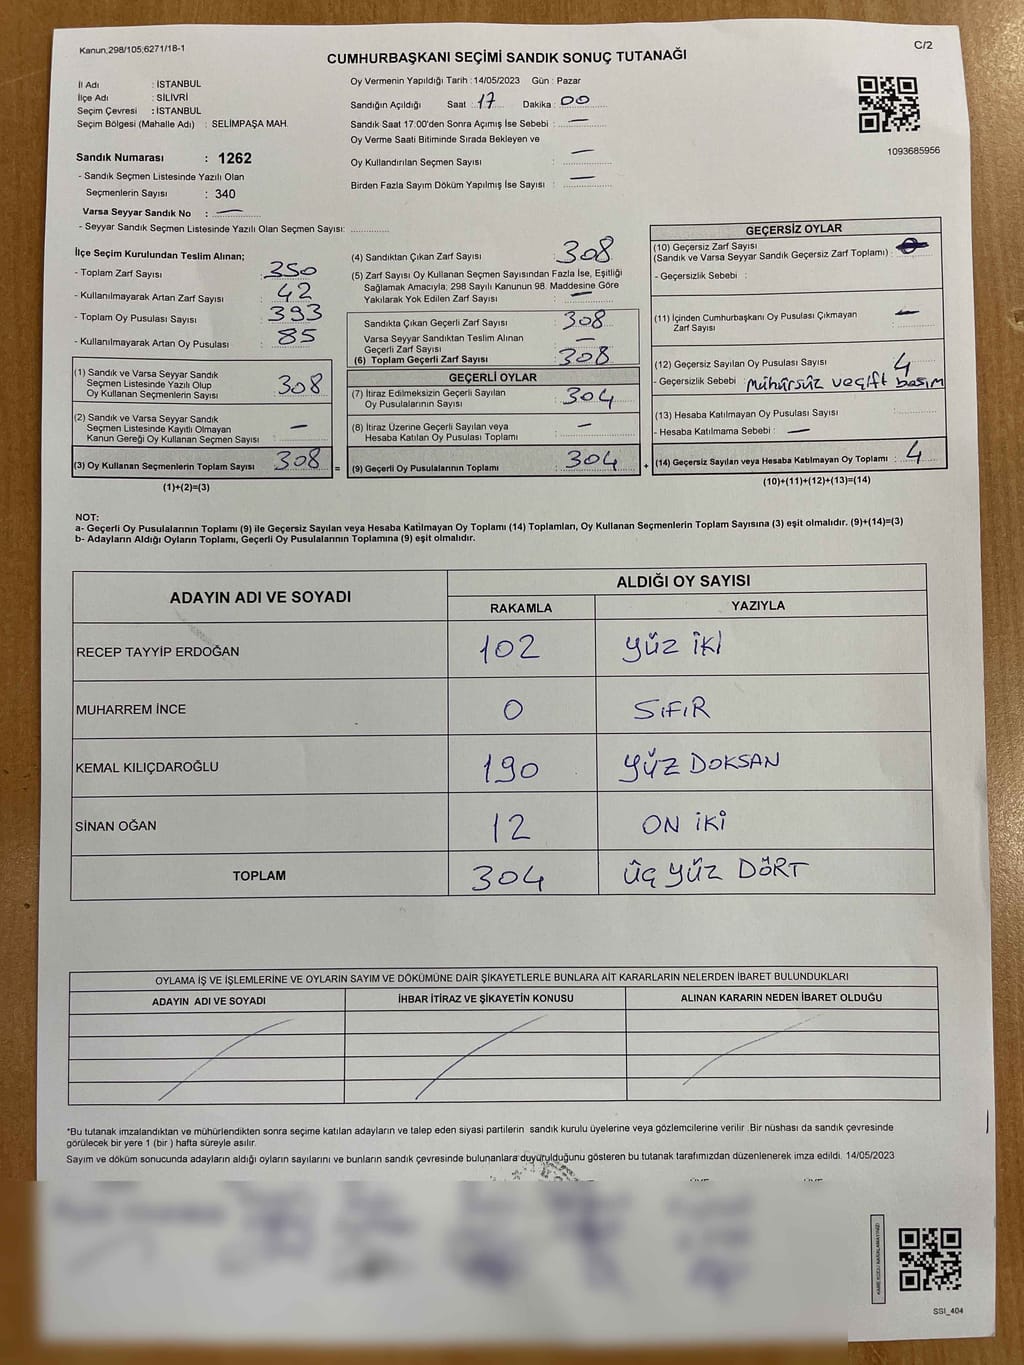 Kanun;298/105;6271/18-1
C/2
CUMHURBAŞKANI SEÇİMİ SANDIK SONUÇ TUTANAĞI
İl Adı : İSTANBUL
İlçe Adı : SİLİVRİ
Seçim Çevresi : İSTANBUL
Seçim Bölgesi (Mahalle Adı) : SELİMPAŞA MAH.
Sandık Numarası : 1262
- Sandık Seçmen Listesinde Yazılı Olan
Seçmenlerin Sayısı : 340
Varsa Seyyar Sandık No : —
- Seyyar Sandık Seçmen Listesinde Yazılı Olan Seçmen Sayısı: ..............
Oy Vermenin Yapıldığı Tarih : 14/05/2023 Gün : Pazar
Sandığın Açıldığı Saat : 17 Dakika : 00
Sandık Saat 17:00'den Sonra Açımış İse Sebebi : —
Oy Verme Saati Bitiminde Sırada Bekleyen ve
Oy Kullandırılan Seçmen Sayısı : —
Birden Fazla Sayım Döküm Yapılmış İse Sayısı : —
1093685956
İlçe Seçim Kurulundan Teslim Alınan;
- Toplam Zarf Sayısı : 350
- Kullanılmayarak Artan Zarf Sayısı : 42
- Toplam Oy Pusulası Sayısı : 393
- Kullanılmayarak Artan Oy Pusulası : 85
(1) Sandık ve Varsa Seyyar Sandık
Seçmen Listesinde Yazılı Olup
Oy Kullanan Seçmenlerin Sayısı : 308
(2) Sandık ve Varsa Seyyar Sandık
Seçmen Listesinde Kayıtlı Olmayan
Kanun Gereği Oy Kullanan Seçmen Sayısı : —
(3) Oy Kullanan Seçmenlerin Toplam Sayısı : 308 =
(1)+(2)=(3)
(4) Sandıktan Çıkan Zarf Sayısı : 308
(5) Zarf Sayısı Oy Kullanan Seçmen Sayısından Fazla İse, Eşitliği
Sağlamak Amacıyla; 298 Sayılı Kanunun 98. Maddesine Göre
Yakılarak Yok Edilen Zarf Sayısı : —
Sandıkta Çıkan Geçerli Zarf Sayısı : 308
Varsa Seyyar Sandıktan Teslim Alınan
Geçerli Zarf Sayısı : —
(6) Toplam Geçerli Zarf Sayısı : 308
GEÇERLİ OYLAR
(7) İtiraz Edilmeksizin Geçerli Sayılan
Oy Pusulalarının Sayısı : 304
(8) İtiraz Üzerine Geçerli Sayılan veya
Hesaba Katılan Oy Pusulası Toplamı : —
(9) Geçerli Oy Pusulalarının Toplamı : 304 +
GEÇERSİZ OYLAR
(10) Geçersiz Zarf Sayısı
(Sandık ve Varsa Seyyar Sandık Geçersiz Zarf Toplamı) :
- Geçersizlik Sebebi :
(11) İçinden Cumhurbaşkanı Oy Pusulası Çıkmayan : —
Zarf Sayısı
(12) Geçersiz Sayılan Oy Pusulası Sayısı : 4
- Geçersizlik Sebebi : Mühürsüz ve çift basım
(13) Hesaba Katılmayan Oy Pusulası Sayısı :
- Hesaba Katılmama Sebebi : —
(14) Geçersiz Sayılan veya Hesaba Katılmayan Oy Toplamı : 4
(10)+(11)+(12)+(13)=(14)
NOT:
a- Geçerli Oy Pusulalarının Toplamı (9) ile Geçersiz Sayılan veya Hesaba Katılmayan Oy Toplamı (14) Toplamları, Oy Kullanan Seçmenlerin Toplam Sayısına (3) eşit olmalıdır. (9)+(14)=(3)
b- Adayların Aldığı Oyların Toplamı, Geçerli Oy Pusulalarının Toplamına (9) eşit olmalıdır.
ADAYIN ADI VE SOYADI
ALDIĞI OY SAYISI
RAKAMLA YAZIYLA
RECEP TAYYİP ERDOĞAN 102 YÜZ İKİ
MUHARREM İNCE 0 SIFIR
KEMAL KILIÇDAROĞLU 190 YÜZ DOKSAN
SİNAN OĞAN 12 ON İKİ
TOPLAM 304 ÜÇ YÜZ DÖRT
OYLAMA İŞ VE İŞLEMLERİNE VE OYLARIN SAYIM VE DÖKÜMÜNE DAİR ŞİKAYETLERLE BUNLARA AİT KARARLARIN NELERDEN İBARET BULUNDUKLARI
ADAYIN ADI VE SOYADI İHBAR İTİRAZ VE ŞİKAYETİN KONUSU ALINAN KARARIN NEDEN İBARET OLDUĞU
*Bu tutanak imzalandıktan ve mühürlendikten sonra seçime katılan adayların ve talep eden siyasi partilerin sandık kurulu üyelerine veya gözlemcilerine verilir .Bir nüshası da sandık çevresinde
görülecek bir yere 1 (bir ) hafta süreyle asılır.
Sayım ve döküm sonucunda adayların aldığı oyların sayılarını ve bunların sandık çevresinde bulunanlara duyurulduğunu gösteren bu tutanak tarafımızdan düzenlenerek imza edildi. 14/05/2023
SSI_404